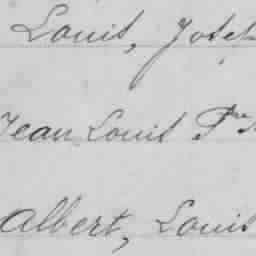 Louis, Josep
Jean Louis
Albert, Louis